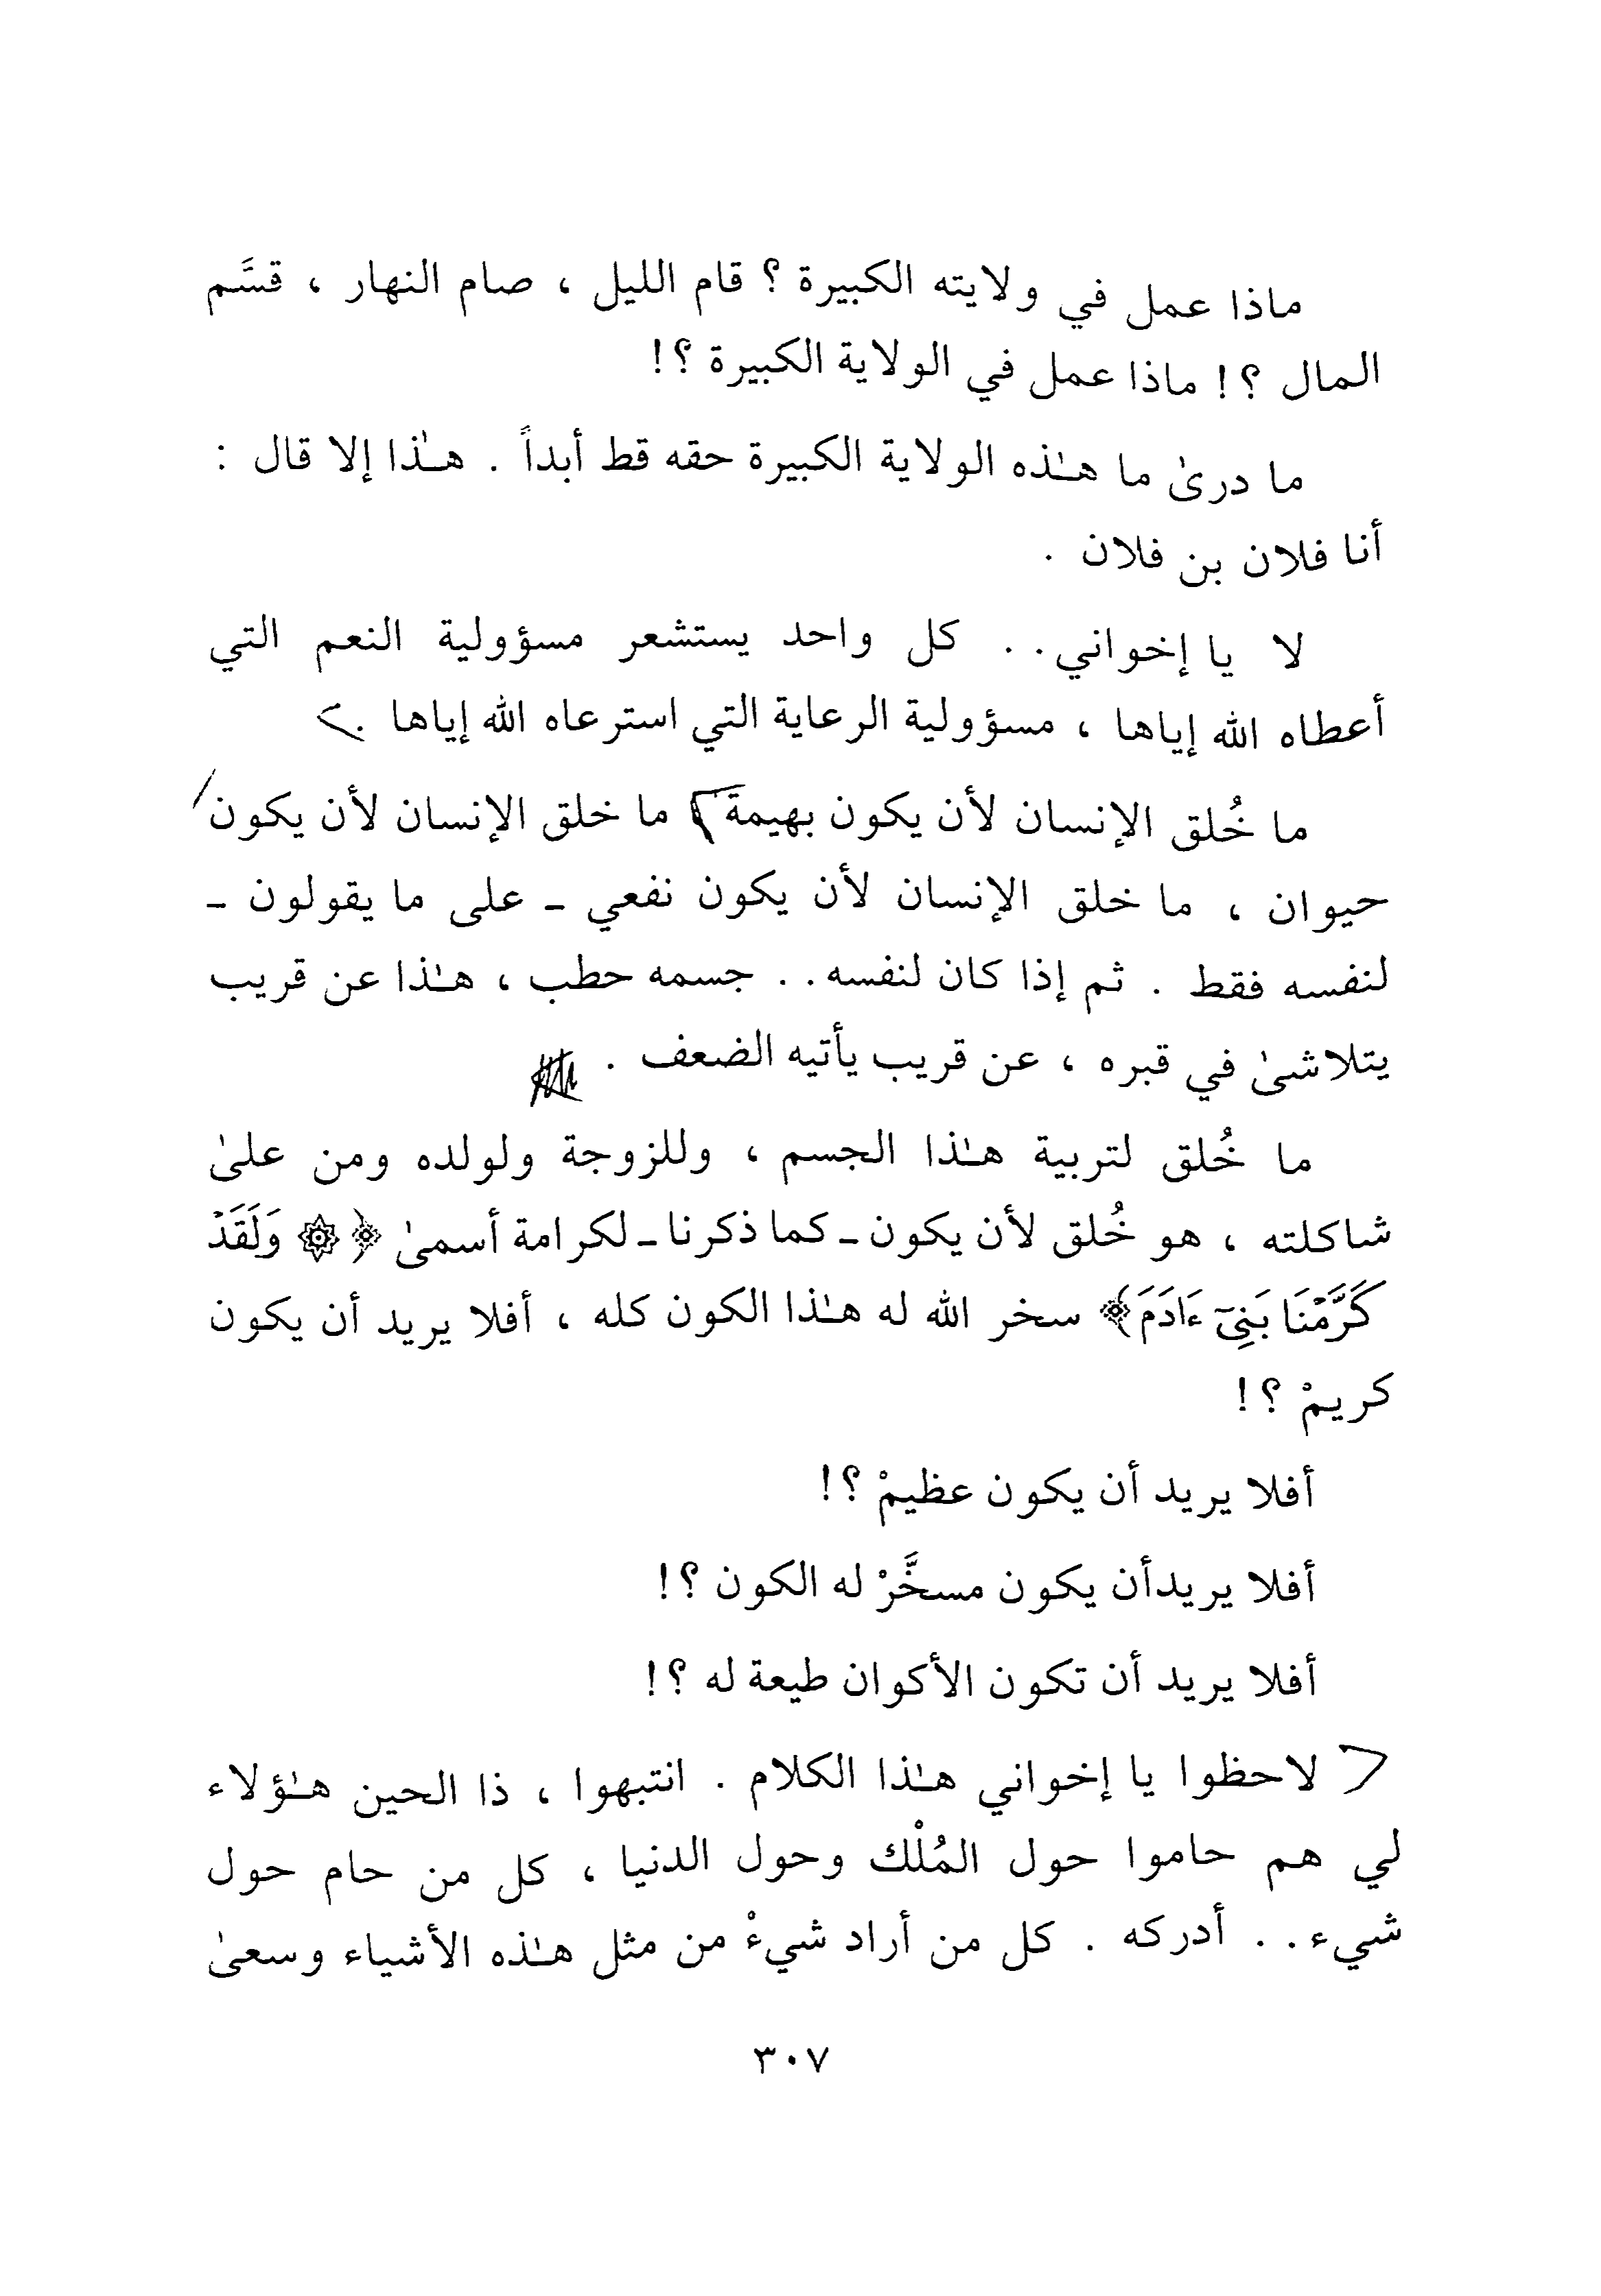 ماذا عمل في ولايته الكبيرة ؟ قام الليل ، صام النهار ، قسَّم
المال ؟! ماذا عمل في الولاية الكبيرة ؟!
ما درىٰ ما هـٰذه الولاية الكبيرة حقه قط أبداً . هـٰذا إلا قال :
أنا فلان بن فلان .
لا يا إخواني . . كل واحد يستشعر مسؤولية النعم التي
أعطاه الله إياها ، مسؤولية الرعاية التي استرعاه الله إياها .
ما خُلق الإنسان لأن يكون بهيمة ، ما خلق الإنسان لأن يكون
حيوان ، ما خلق الإنسان لأن يكون نفعي ـ على ما يقولون ـ
لنفسه فقط . ثم إذا كان لنفسه . . جسمه حطب ، هـٰذا عن قريب
يتلاشىٰ في قبره ، عن قريب يأتيه الضعف .
ما خُلق لتربية هـٰذا الجسم ، وللزوجة ولولده ومن علىٰ
شاكلته ، هو خُلق لأن يكون ـ كما ذكرنا ـ لكرامة أسمىٰ ﴿ ۞ وَلَقَدْ
كَرَّمْنَا بَنِيٓ ءَادَمَ ﴾ سخر الله له هـٰذا الكون كله ، أفلا يريد أن يكون
كريمْ ؟!
أفلا يريد أن يكون عظيمْ ؟!
أفلا يريدأن يكون مسخَّرْ له الكون ؟!
أفلا يريد أن تكون الأكوان طيعة له ؟!
لاحظوا يا إخواني هـٰذا الكلام . انتبهوا ، ذا الحين هـٰؤلاء
لي هم حاموا حول المُلْك وحول الدنيا ، كل من حام حول
شيء . . أدركه . كل من أراد شيءْ من مثل هـٰذه الأشياء وسعىٰ
٣٠٧